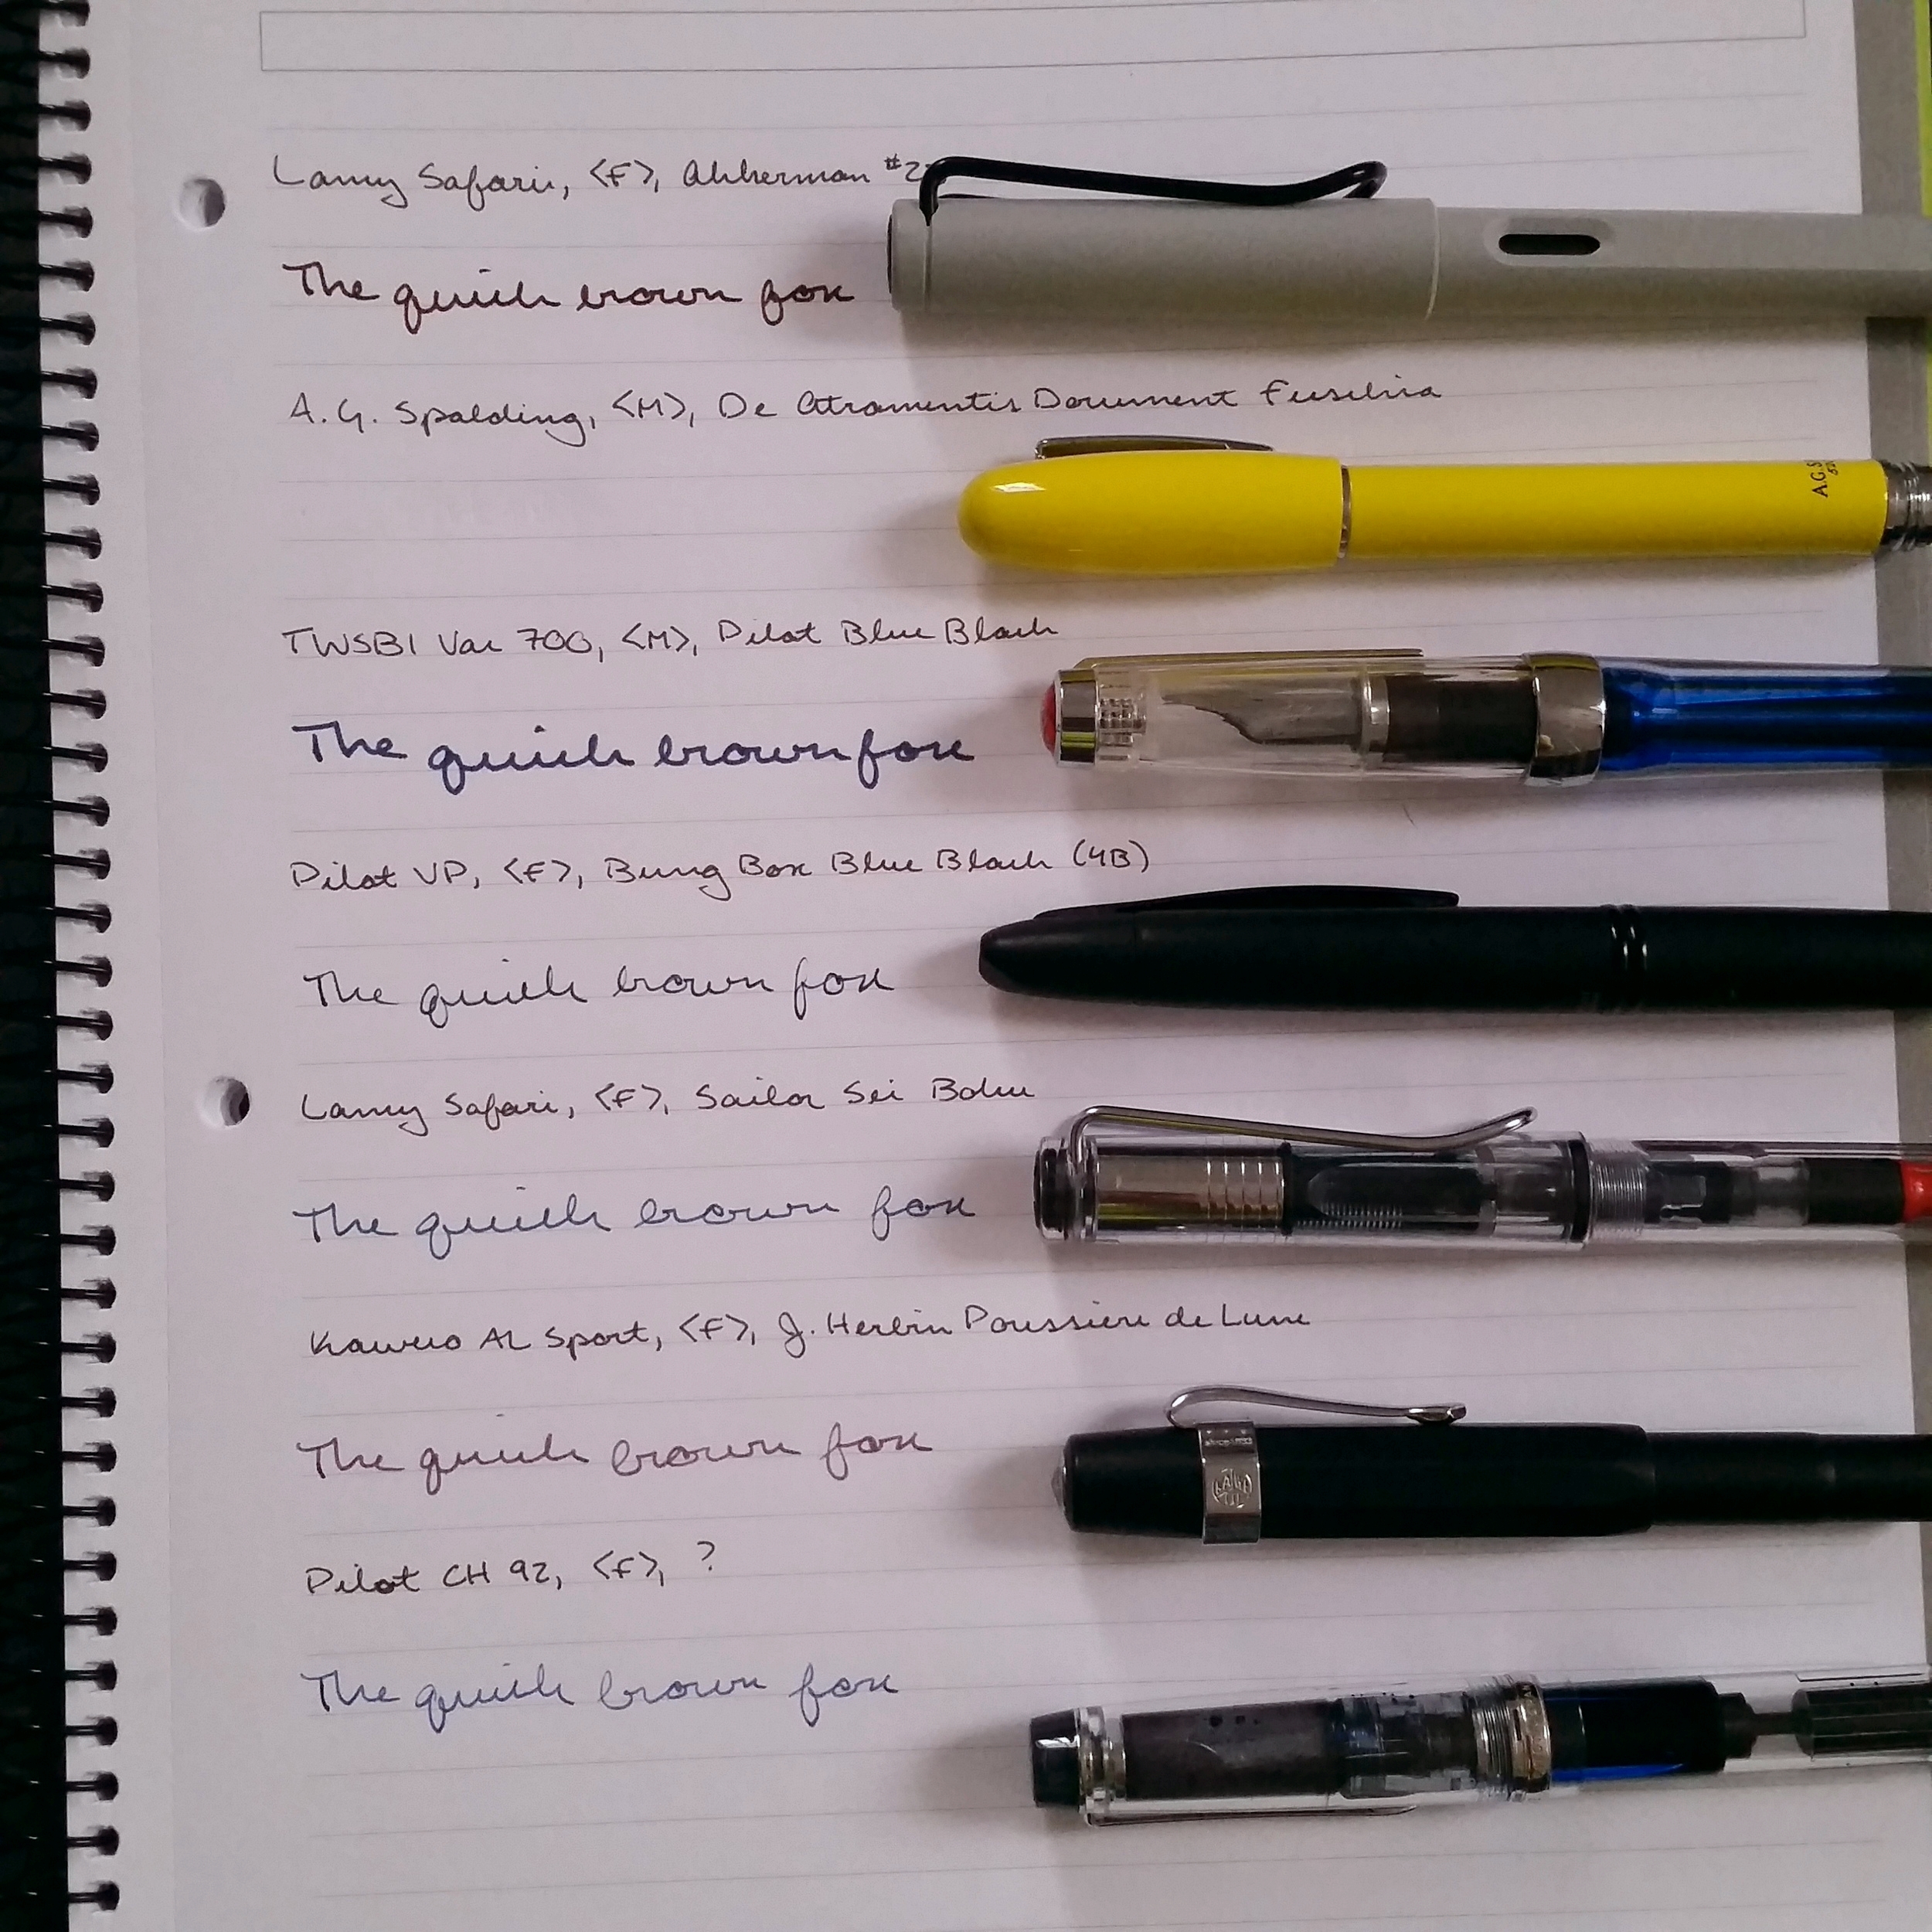 Lamy Safari, <F>, Akkerman #2
The quick brown fox
A.G. Spalding, <M>, De Atramentis Document Fuschia
A.G.S
TWSBI Vac 700, <M>, Pilot Blue Black
The quick brown fox
Pilot VP, <F>, Bung Box Blue Black (4B)
The quick brown fox
Lamy Safari, <F>, Sailor Sei Boku
The quick brown fox
Kaweco AL Sport, <F>, J. Herbin Poussiere de Lune
The quick brown fox
Pilot CH 92, <F>, ?
The quick brown fox